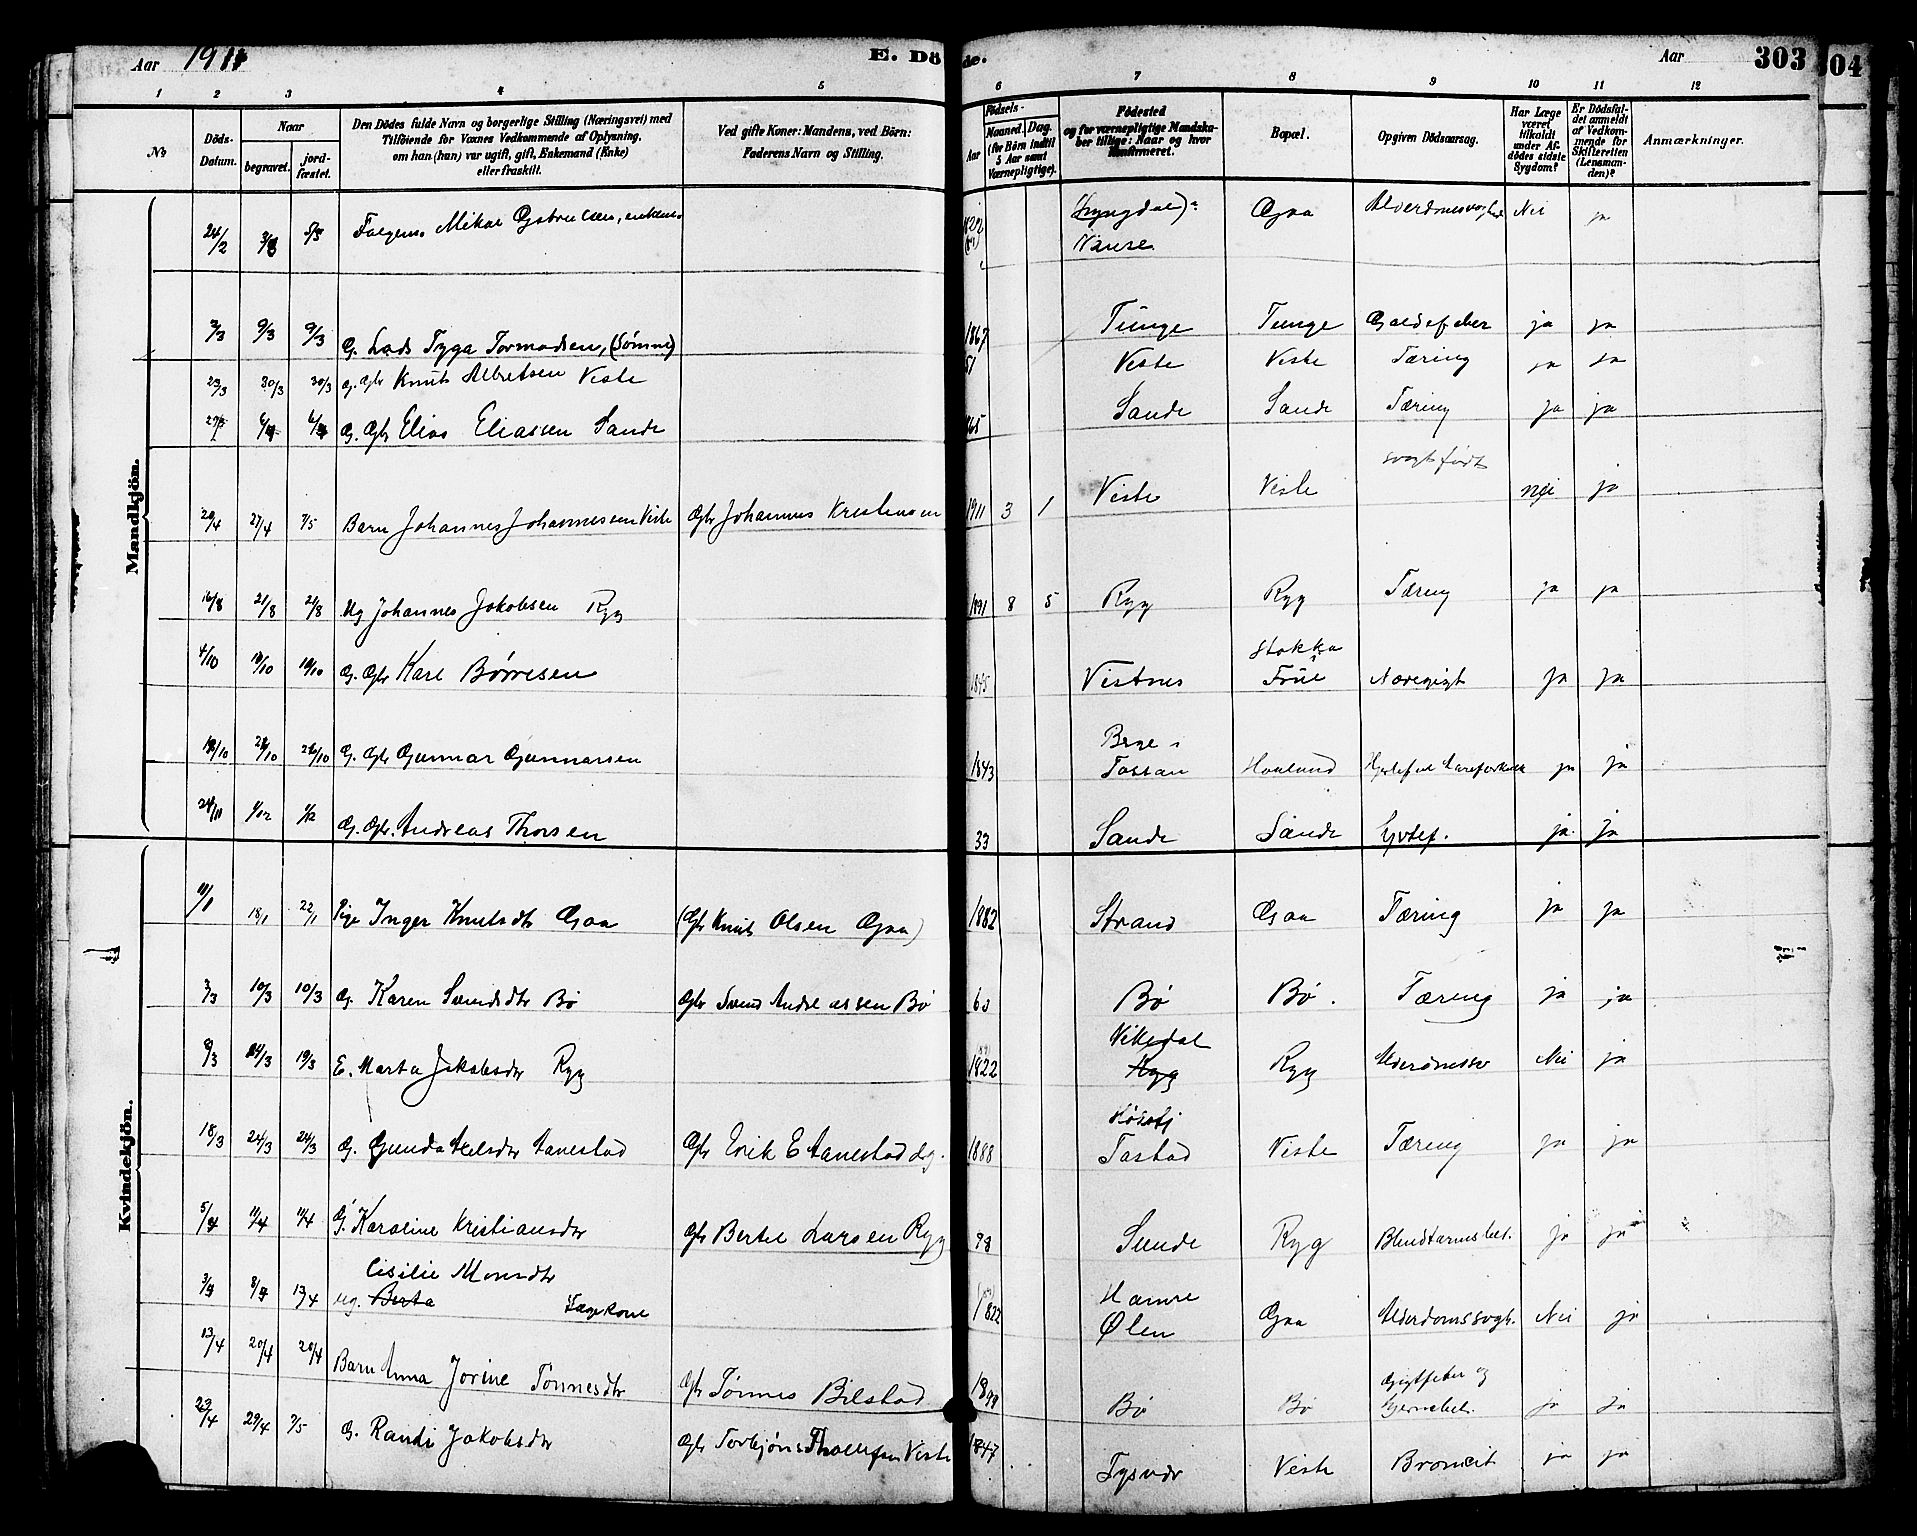 Aar 1911 E. Dö de. Aar 303 04
1 2 3 4 5 6 7 8 9 10 11 12
No
Döds-
Datum.
Naar
begravet.
jord-
fæstet.
Den Dödes fulde Navn og borgerlige Stilling (Næringsvei) med
Tilföiende for Voxnes Vedkommende af Oplysning,
om han (hun) var ugift, gift, Enkemand (Enke)
eller fraskilt.
Ved gifte Koner: Mandens, ved Börn:
Faderens Navn og Stilling.
Födsels-
Aar
Maaned. Dag.
(for Börn indtil
5 Aar samt
Værnepligtige).
Födested
og for værnepligtige Mandska-
ber tillige: Naar og hvor
konfirmeret.
Bopæl.
Opgiven Dödsaarsag.
Har Læge
været
tilkaldt
under Af-
dödes sidste
Sygdom?
Er Dödsfal-
det anmeldt
af Vedkom-
mende for
Skifteretten
(Lensman-
den)?
Anmærkninger.
Mandkjön.
24/2 3/3 5/3 Mikal (Lyngdal) Gjaa Nei ja
3/3 9/3 9/3 G. Lods Tormodsen, (Sømme) 1867 Tunge Tunge ja ja
23/3 30/3 30/3 G. Gbr Knut Albretsen Viste 51 Viste Viste Tæring ja ja
6/4 6/4 G. Gbr Elias Eliassen Sande 65 Sande Sande Tæring ja ja
27/4 7/5 Barn Johannes Johannessen Viste Gbr Johannes Kristensen 1911 3 1 Viste Viste svagt født nei ja
16/8 21/8 21/8 Ug Johannes Jakobsen Ryg 1891 8 5 Ryg Ryg Tæring ja ja
4/10 10/10 10/10 G. Gbr Karl Børresen 1845 Vistnes Stokka Frue ja ja
G. Gbr Gunnar Gunnarsen 1843 Berge i Fossan ja ja
24/11 1/12 1/12 G. Gbr. Andreas Thorsen 33 Sande Sande ja ja
Kvindekjön.
11/1 18/1 22/1 Pige Inger Knutsdtr Gjaa (Gbr Knut Olsen Gjaa) 1882 Strand Gjaa Tæring ja ja
3/3 10/3 10/3 G. Karen Svendsdtr Bø Gbr Svend Andreassen Bø 60 Bø Bø. Tæring ja ja
8/3 14/3 19/3 E. Marta Jakobsdtr Ryg 1822 Vikedal Ryg Ryg Nei ja
18/3 24/3 24/3 G. Gunda Axelsdtr Aanestad Gbr Erik E Aanestad 1888 Tastad Viste Tæring ja ja
5/4 11/4 11/4 G. Karoline Kristiansdtr Gbr Bertel Larsen Ryg 98 Sunde Ryg Blindtarmsbet. ja ja
3/4 8/4 17/4 ug. Berta Cisilie Monsdtr Lægdkone 1822 Hamre Ølen Gjaa Alderdomssvagh. Nei ja
13/4 20/4 20/4 Barn Anna Jorine Tønnesdtr Gbr Tønnes Bilstad 1899 Bø Bø Gigtfeber og Hjernebet. ja ja
23/4 29/4 7/5 G. Randi Jakobsdtr Gbr Torbjørn Thollefsen Viste 1847 Tysvær Viste Bronkit ja ja